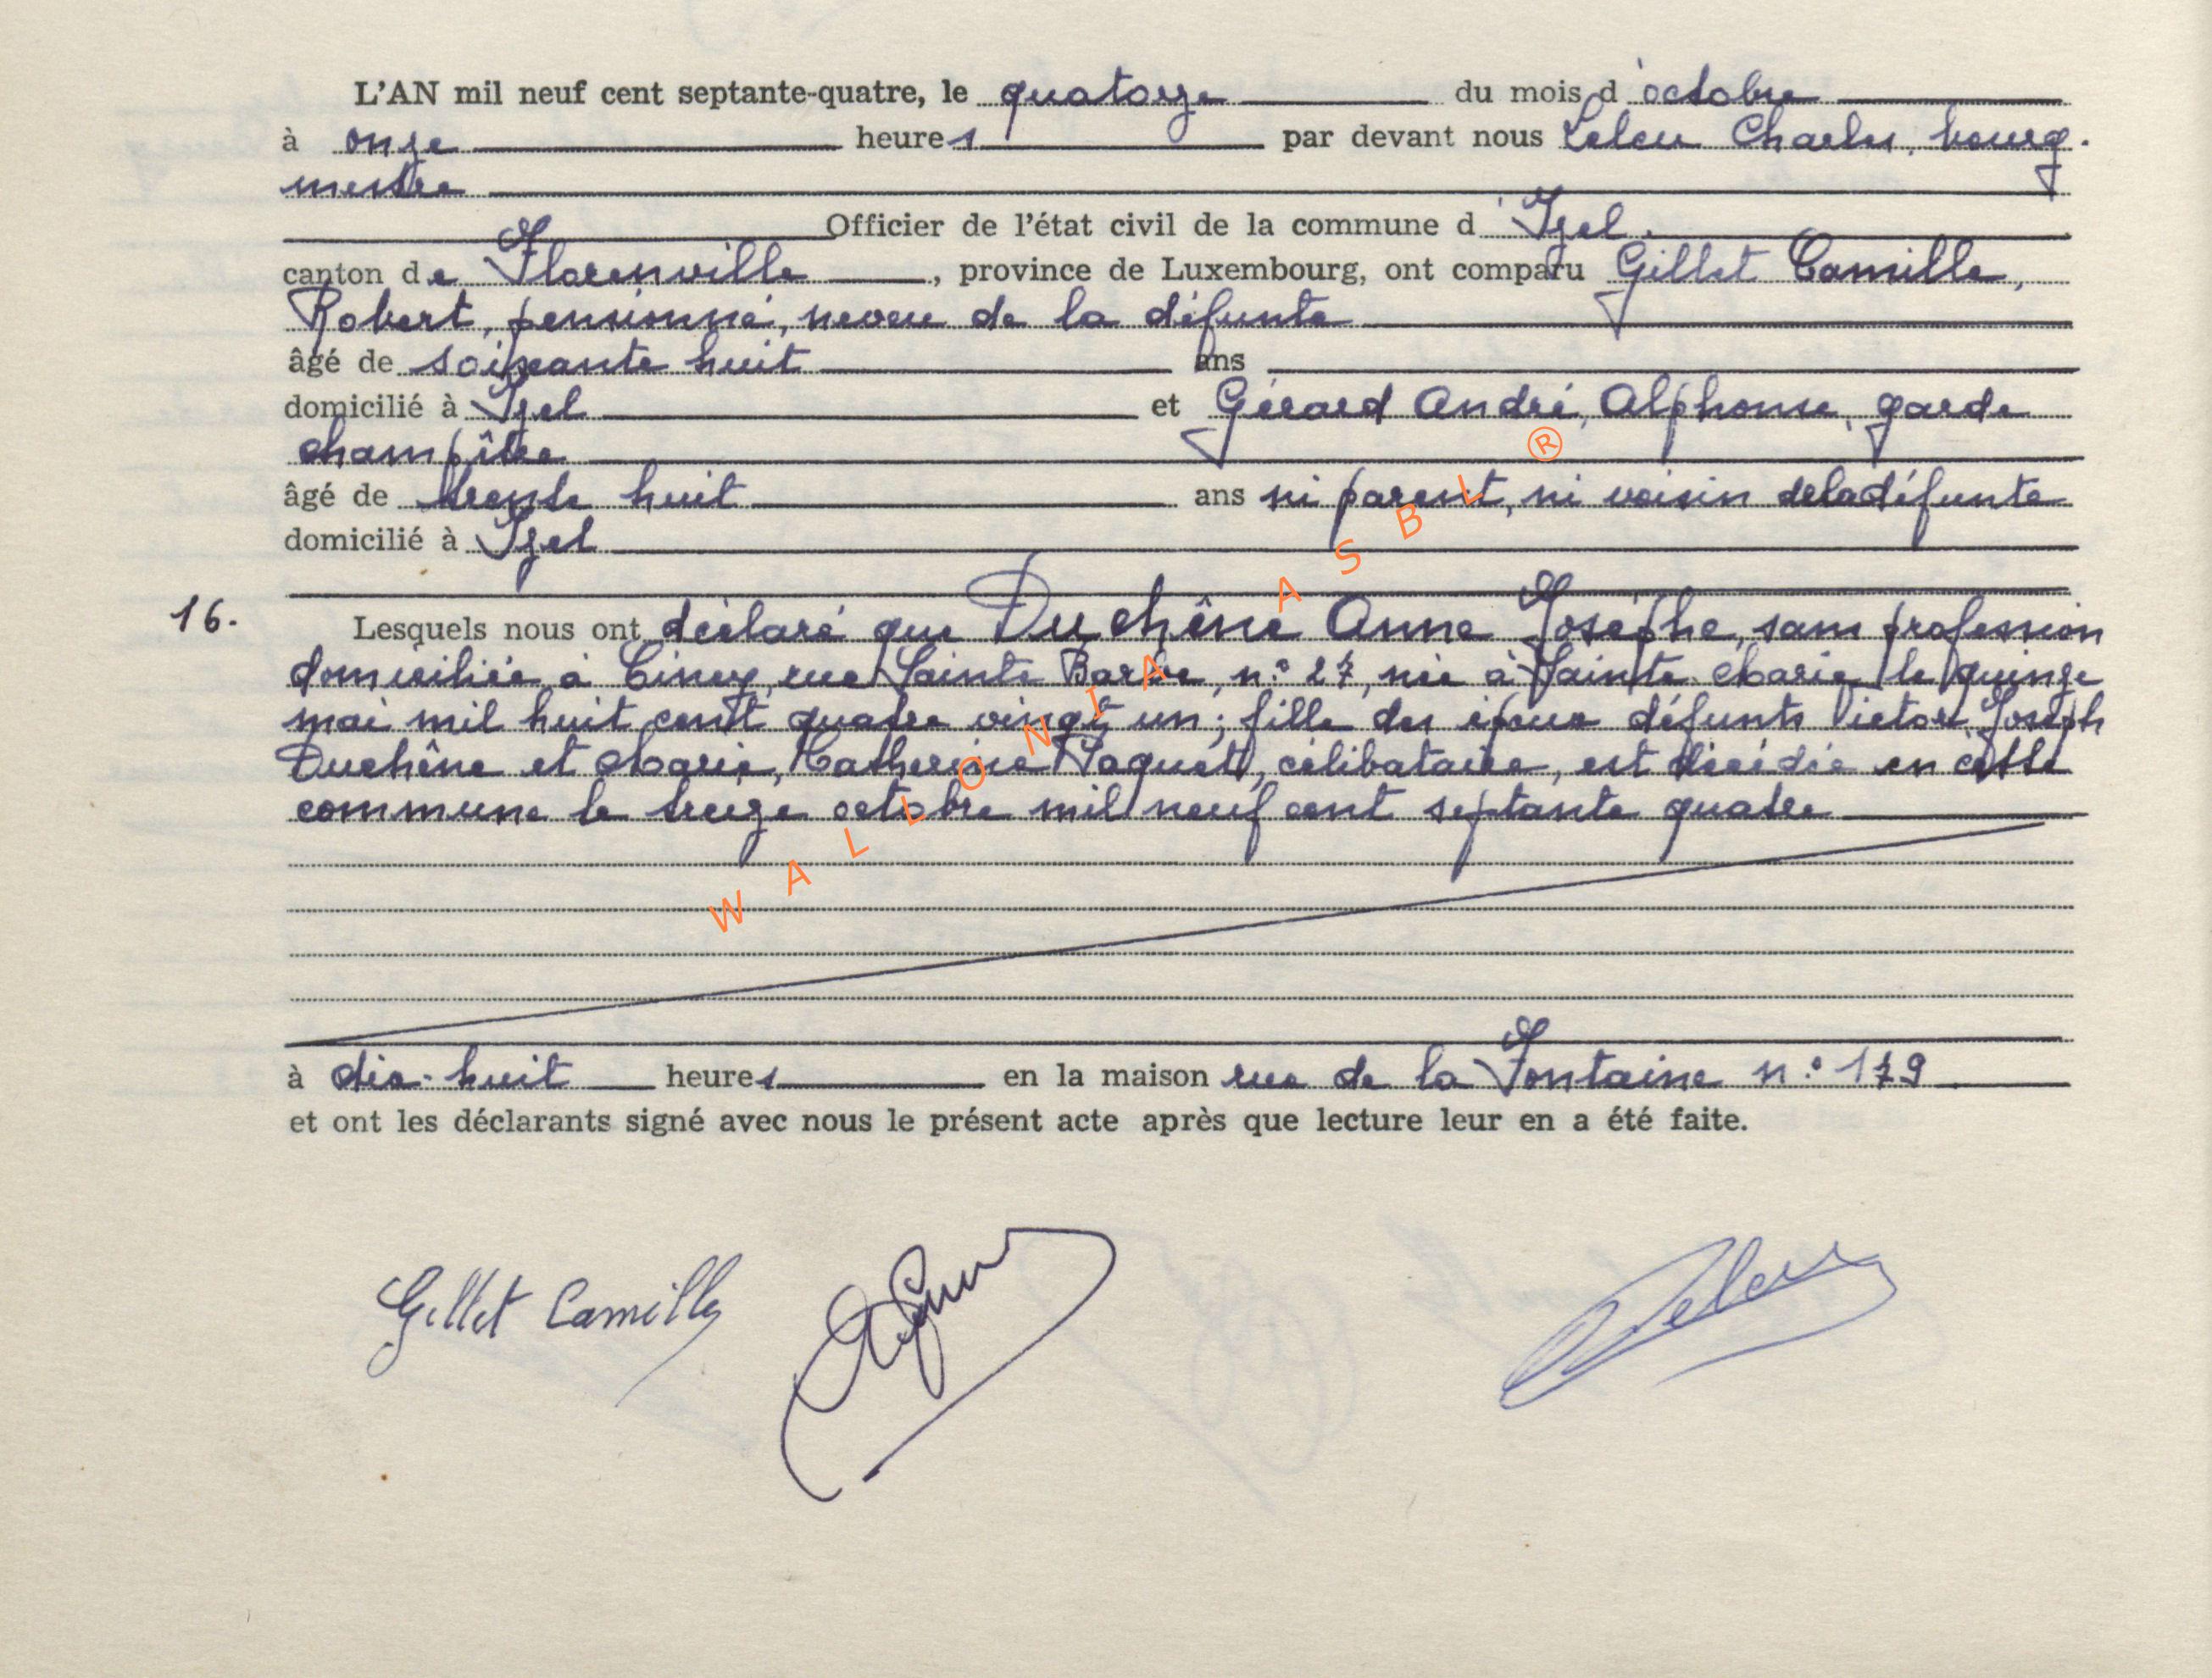 L'AN mil neuf cent septante-quatre, le quatorze du mois d'octobre
à onze heures par devant nous Leleu Charles, bourg-
mestre
Officier de l'état civil de la commune d'Izel.
canton de Florenville, province de Luxembourg, ont comparu Gillet Camille,
Robert, pensionné, neveu de la défunte
âgé de soixante huit ans
domicilié à Izel et Gérard André, Alphonse, garde
champître
âgé de trente huit ans ni parent, ni voisin de la défunte
domicilié à Izel
16. Lesquels nous ont déclaré que Duchêne Anne Josèphe, sans profession
domiciliée à Ciney, rue Sainte Barbe, n° 27, née à Sainte Marie le quinze
mai mil huit cent quatre vingt un; fille des époux défunts Victor Joseph
Duchêne et Marie, Catherine Paquet, célibataire, est décédée en cette
commune le treize octobre mil neuf cent septante quatre
à dix-huit heures en la maison rue de la Fontaine n° 179
et ont les déclarants signé avec nous le présent acte après que lecture leur en a été faite.
Gillet Camille Leleu
WALLONIA ASBL ®